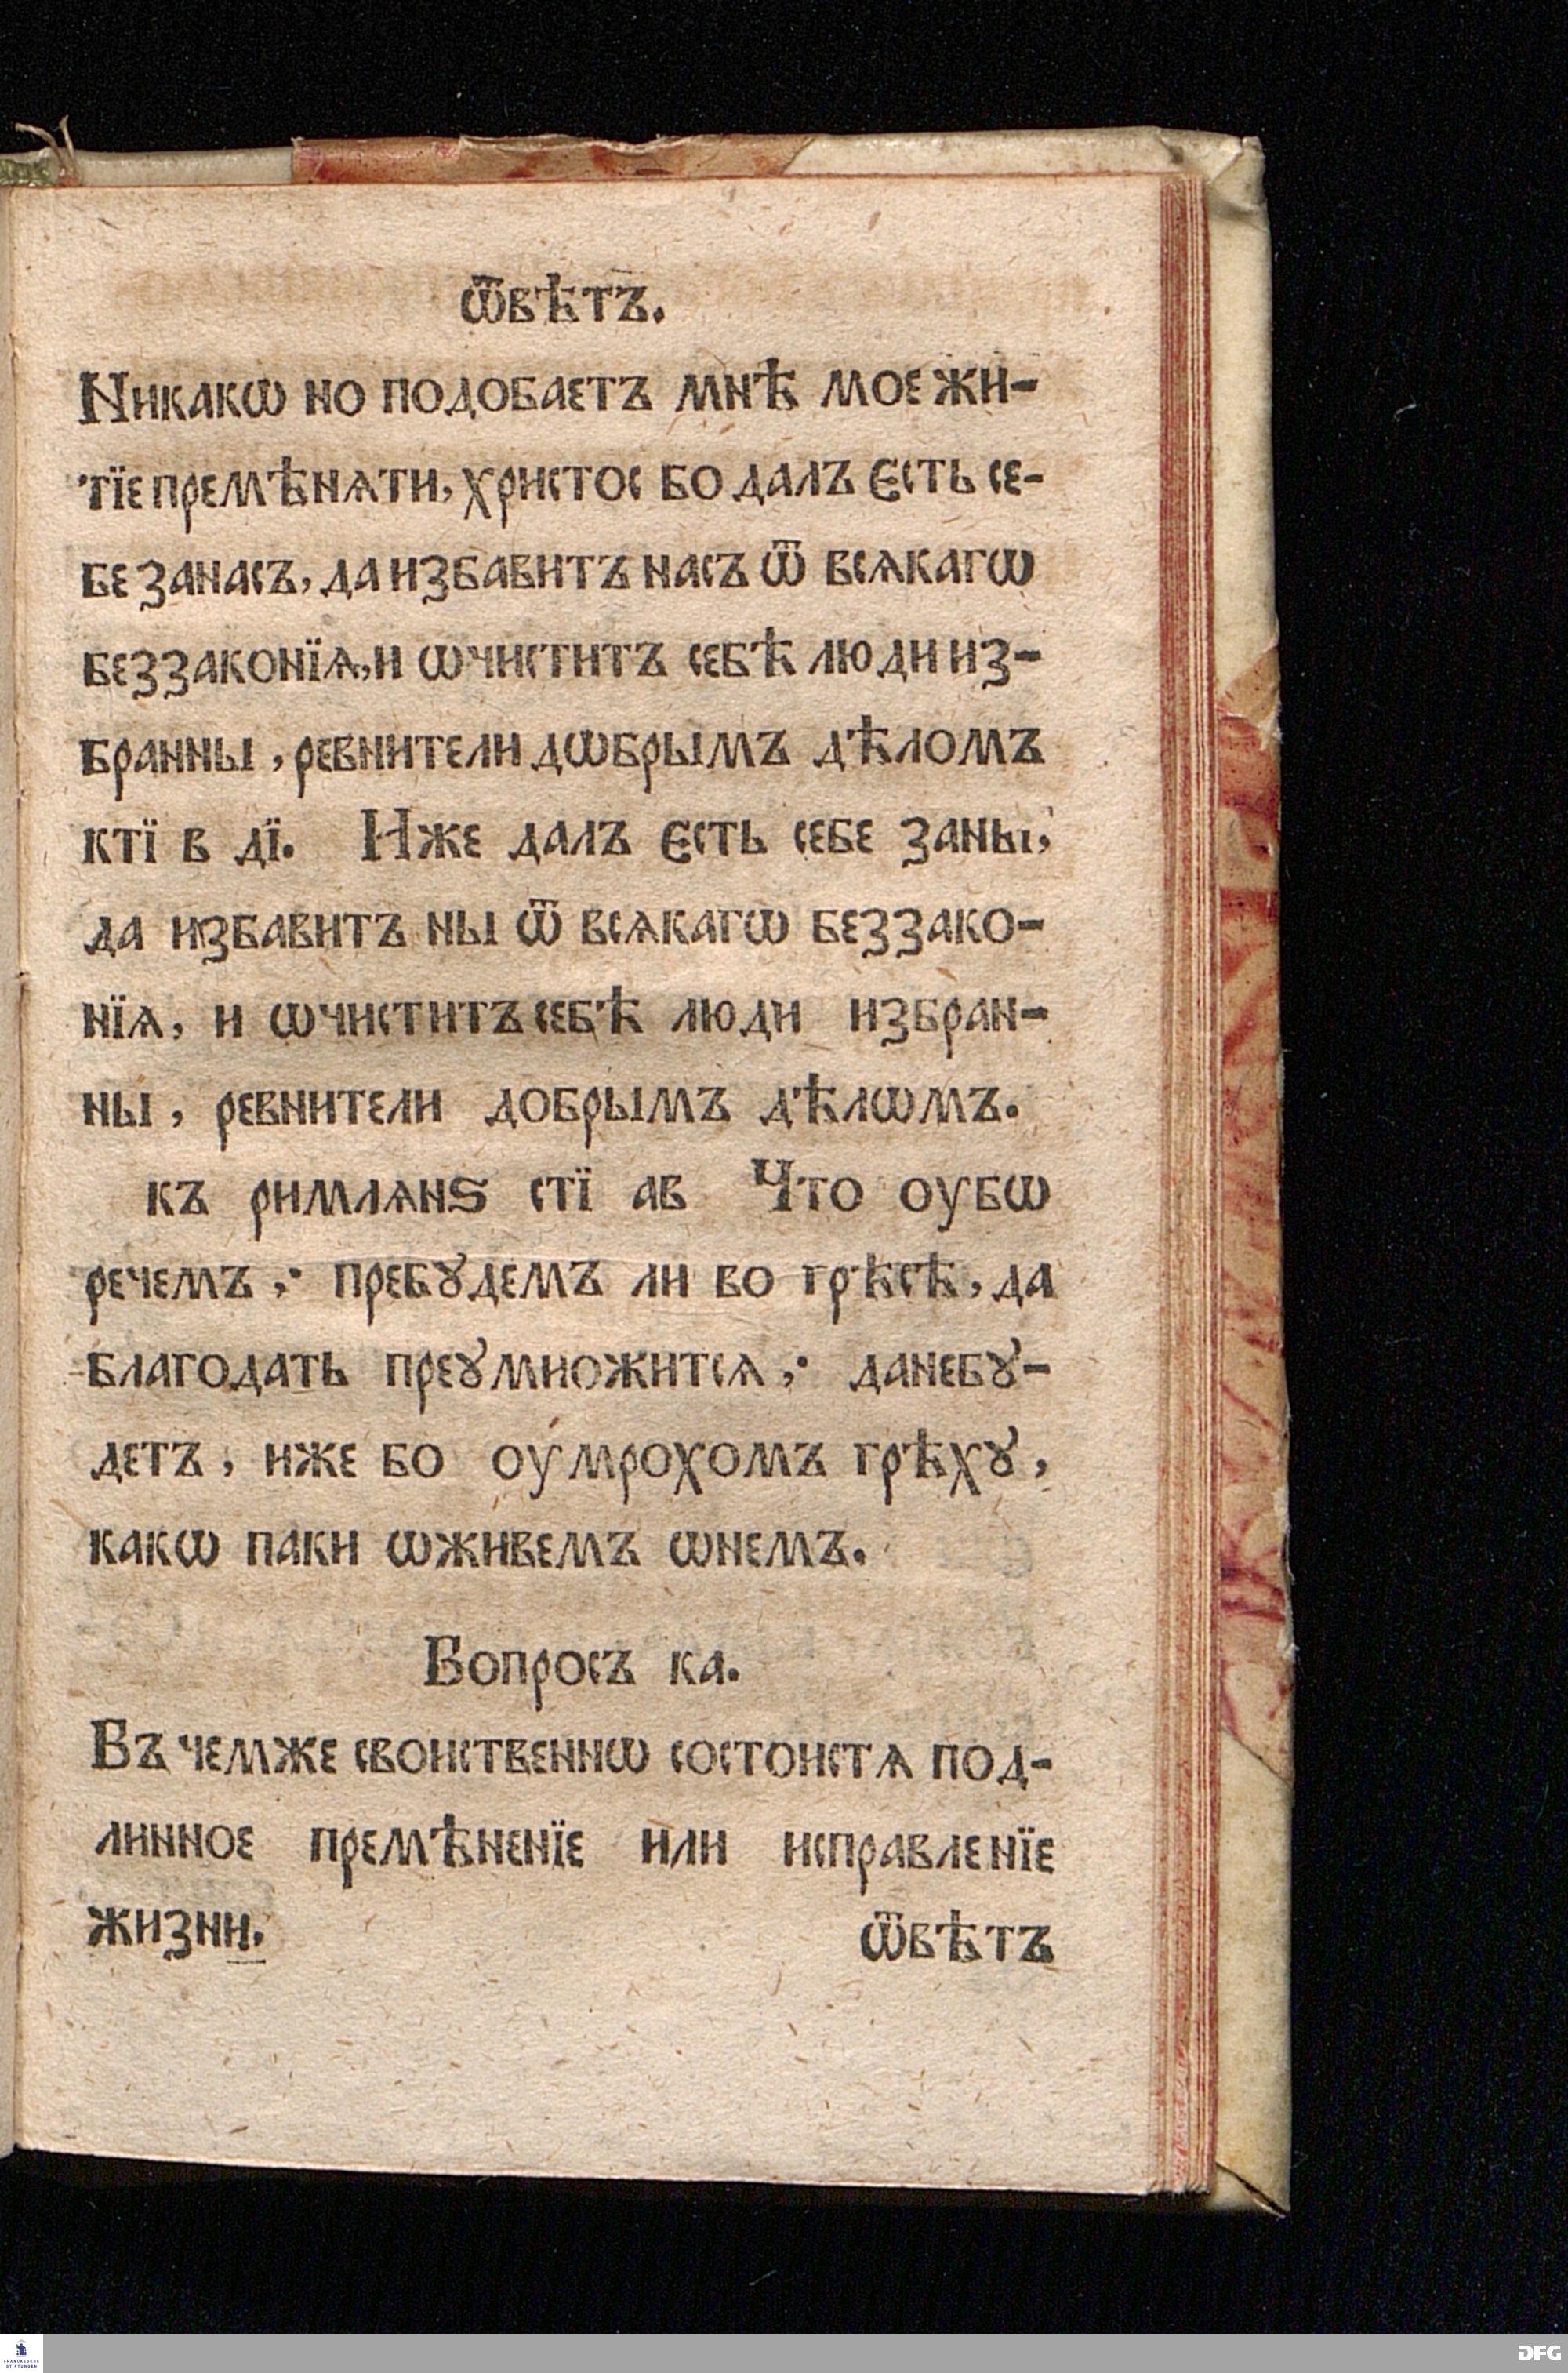 ѿвѣтъ.
Никакѡ но подобаетъ мнѣ мое жи-
тїе премѣнѧти, христос бо далъ єсть се-
бе занасъ, да избавитъ насъ ѿ всѧкагѡ
беззаконїѧ, и ѡчиститъ себѣ люди из-
бранны, ревнители дѡбрымъ дѣломъ
ктї в дї. Иже далъ єсть себе заны,
да избавитъ ны ѿ всѧкагѡ беззако-
нїѧ, и ѡчиститъ себѣ люди избран-
ны, ревнители добрымъ дѣлѡмъ.
къ римлѧнѕ стї ав Что оубѡ
речемъ ; пребꙋдемъ ли во грѣсѣ, да
благодать преꙋмножитсѧ ; данебꙋ-
детъ, иже бо оумрохомъ грѣхꙋ,
какѡ паки ѡживемъ ѡнемъ.
Вопросъ ка.
Въ чемже своиственнѡ состоистѧ под-
линное премѣненїе или исправленїе
жизни.
ѿвѣтъ
FRANCKESCHE STIFTUNGEN
DFG